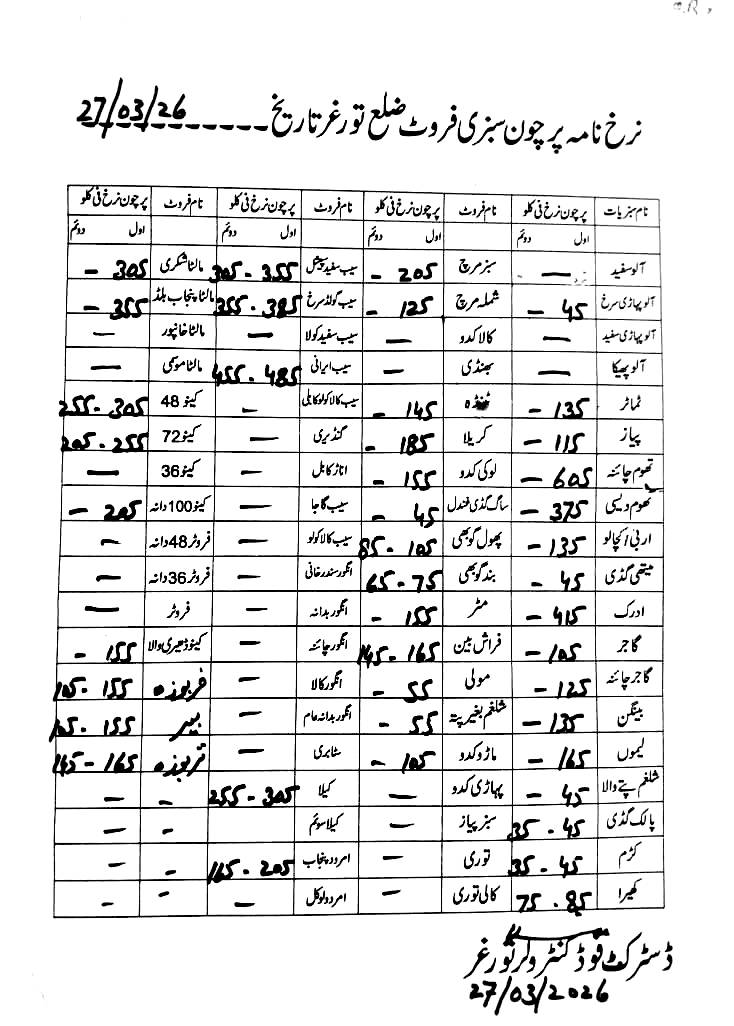 نرخ نامہ پرچون سبزی فروٹ ضلع تورغر تاریخ 27/03/26
نام سبزیات پرچون نرخ فی کلو نام فروٹ پرچون نرخ فی کلو نام فروٹ پرچون نرخ فی کلو نام فروٹ پرچون نرخ فی کلو
اول دوئم اول دوئم اول دوئم اول دوئم
آلو سفید — سبز مرچ 205 - سیب سفید سپیشل 355 - 305 مالٹا شکری 305 -
آلو پہاڑی سرخ 45 - شملہ مرچ 125 - سیب گولڈ سرخ 385 - 355 مالٹا پنجاب بلڈ 355 -
آلو پہاڑی سفید — کالا کدو — سیب سفید کولا — مالٹا خانپور —
آلو پھیکا — بھنڈی — سیب ایرانی 485 - 455 مالٹا موسمی —
ٹماٹر 135 - ٹنڈہ 145 - سیب کالا کولو کابلی — کینو 48 305 - 255
پیاز 115 - کریلا 185 - گنڈیری — کینو 72 255 - 205
تھوم چائنہ 605 - لوکی کدو 155 - انار کابل — کینو 36 —
تھوم دیسی 375 - ساگ گڈی فندل 45 - سیب گاجا — کینو 100 دانہ 205 -
اربی / کچالو 135 - پھول گوبھی 105 - 85 سیب کالا کولو — فروٹر 48 دانہ —
میتھی گڈی 45 - بند گوبھی 75 - 65 انگور سندر خانی — فروٹر 36 دانہ —
ادرک 415 - مٹر 155 - انگور بدانہ — فروٹر —
گاجر 105 - فراش بین 165 - 145 انگور چائنہ — کینو ڈھیری والا 155 -
گاجر چائنہ 125 - مولی 55 - انگور کالا — خربوزہ 155 - 105
بینگن 135 - شلغم بغیر پتہ 55 - انگور بدانہ عام — بیر 155 - 105
لیموں 165 - ماڑو کدو 105 - سٹابری — تربوزہ 165 - 145
شلغم پتے والا 45 - پہاڑی کدو — کیلا 305 - 255 - —
پالک گڈی 45 - 35 سبز پیاز — کیلا سوئم - —
کڑم 45 - 35 توری — امرود پنجاب 205 - 165 - —
کھیرا 85 - 75 کالی توری — امرود لوکل — - -
ڈسٹرکٹ فوڈ کنٹرولر تورغر
27/03/2026